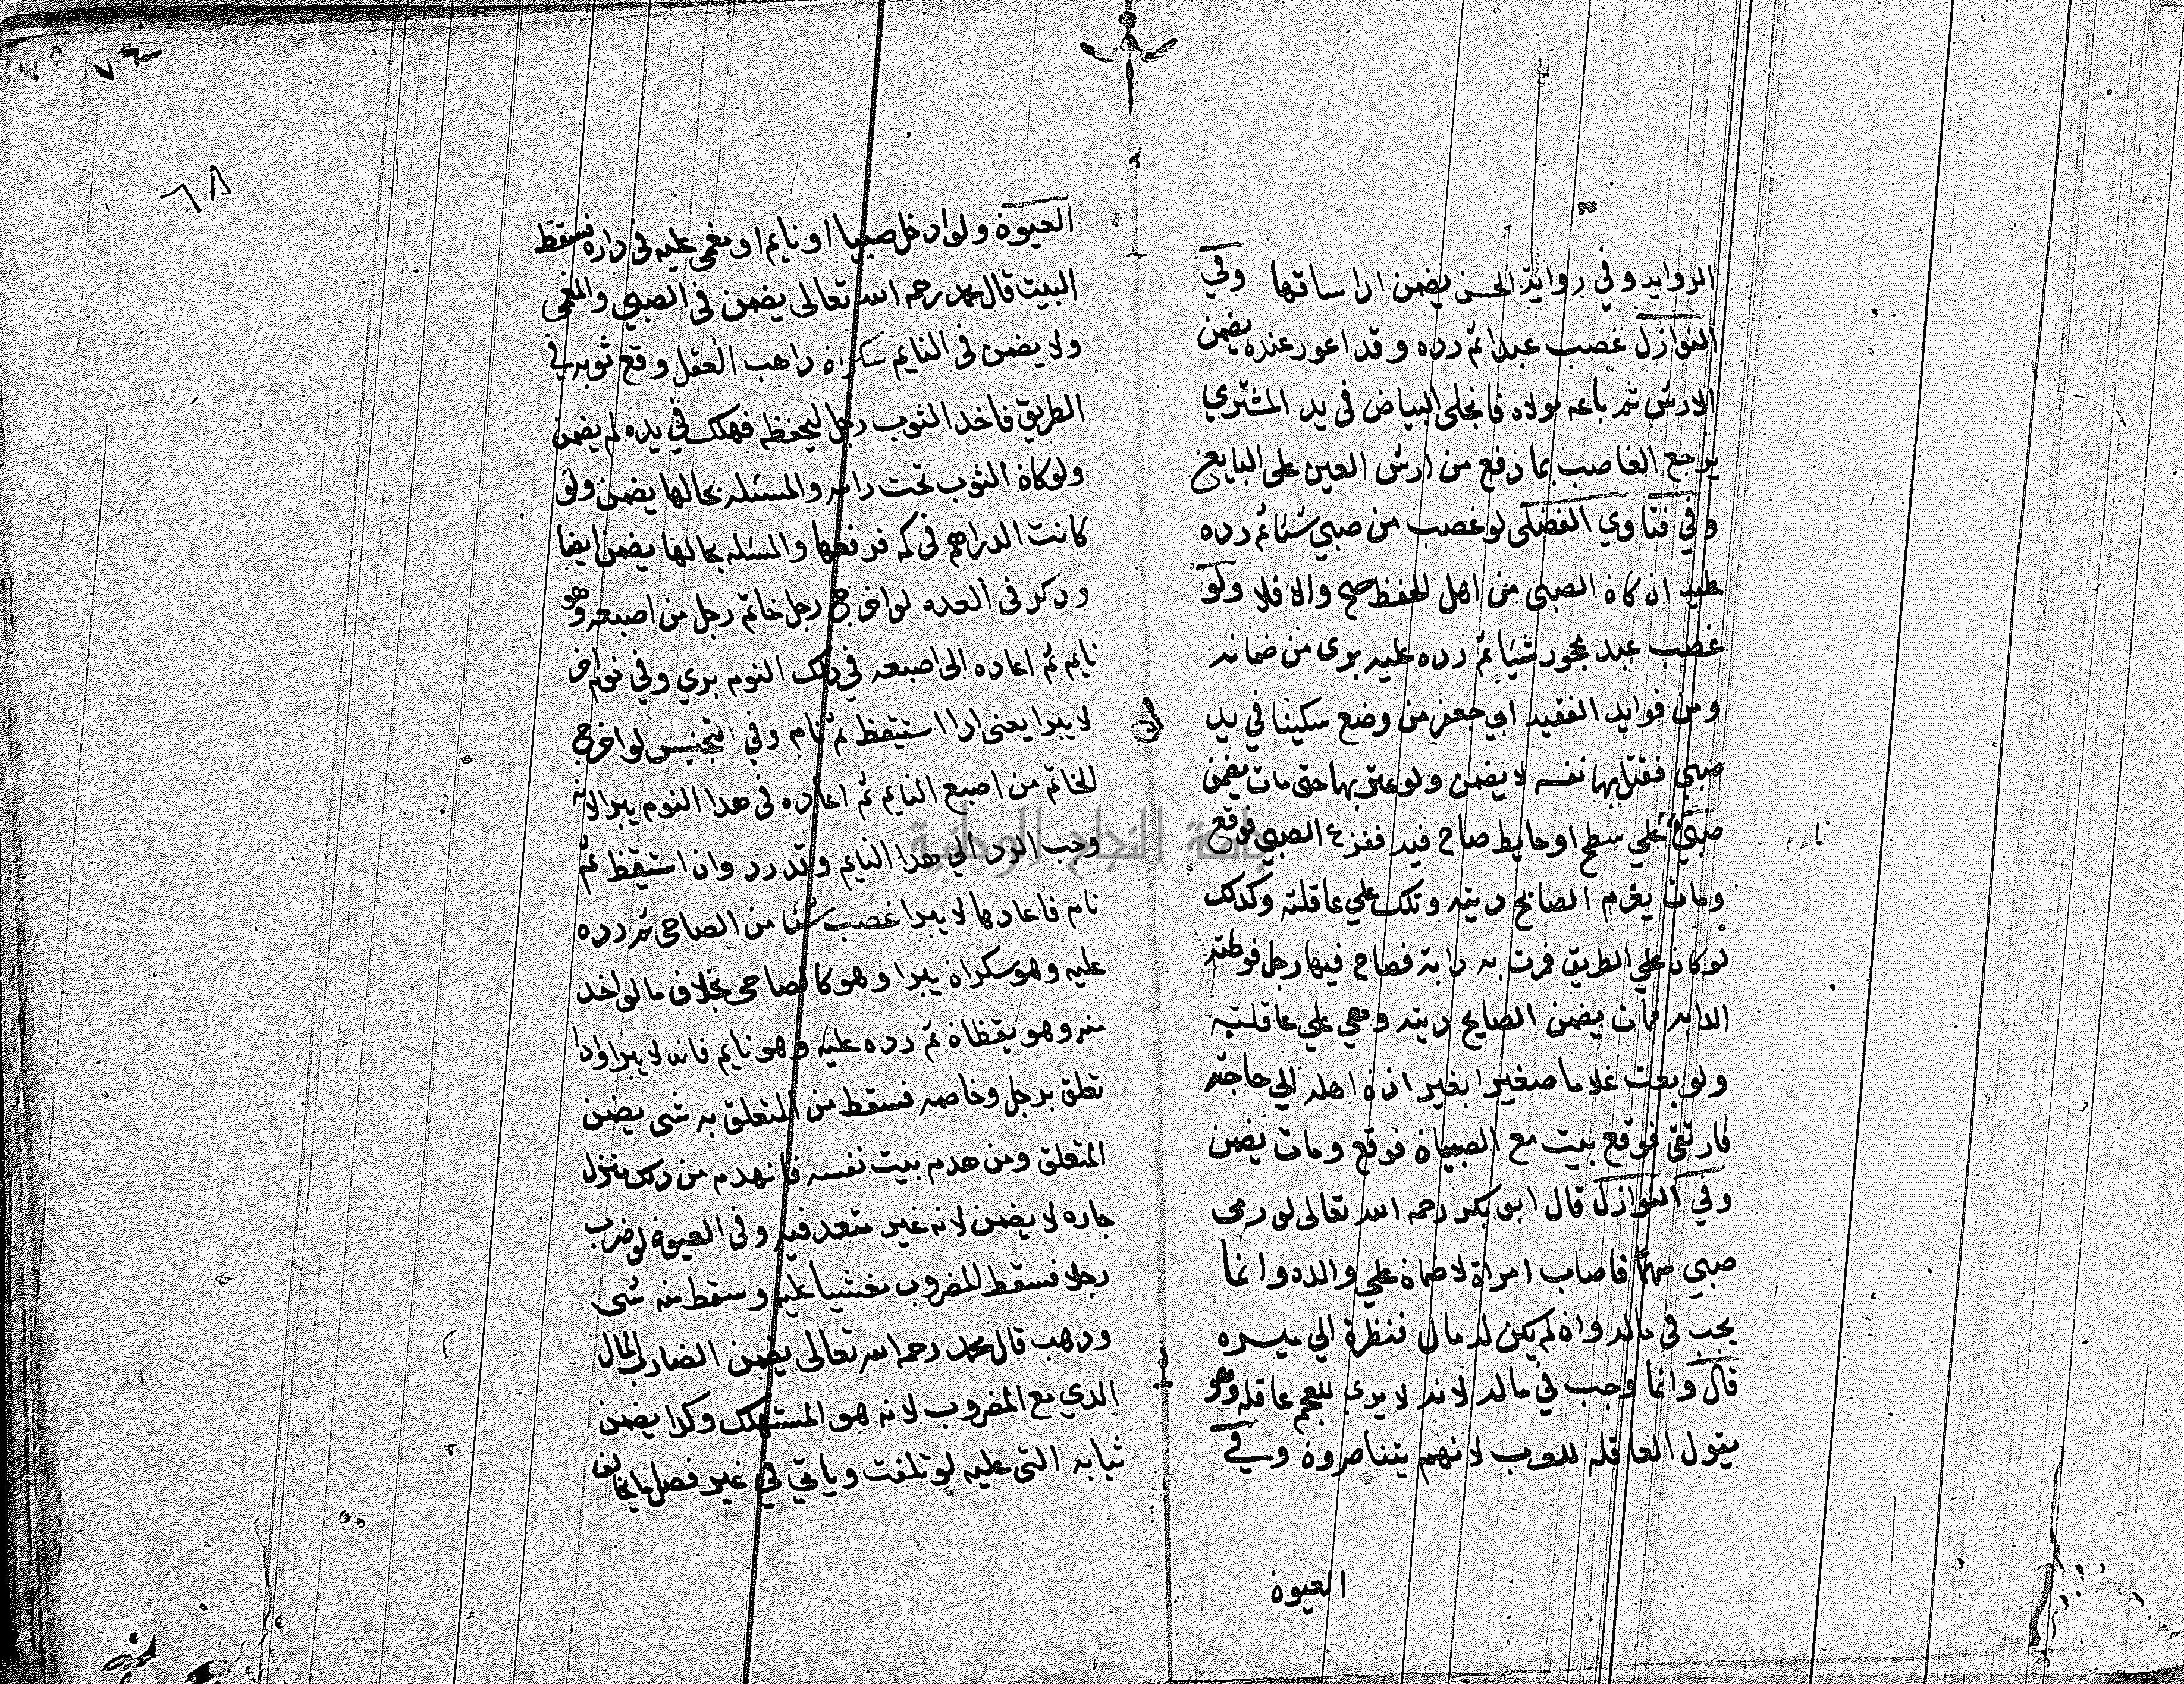 الروايد وفي رواية الحسن يضمن اذا ساقها وفي
النوازل غصب عبدا ثم رده وقد اعور عنده يضمن
الارش ثم باعه مولاه فانجلى البياض في يد المشتري
يرجع الغاصب بما دفع من ارش العين على البايع
وفي فتاوي الفضلى لو غصب من صبي شئا ثم رده
عليه ان كان الصبي من اهل الحفظ صح والا فلا ولو
غصب عبد محجور شيئا ثم رده عليه برى من ضمانه
ومن فوايد الفقيه ابي جعفر من وضع سكينا في يد
صبي فقتل بها نفسه لا يضمن ولو عثر بها حتى مات يضمن
صبي على سطح او حايط صاح فيه ففزع الصبي فوقع
ومات يغرم الصايح ديته وتلك على عاقلته وكذلك
لو كان على الطريق فمرت به دابة فصاح فيها رجل فوطئته
الدابه فمات يضمن الصايح ديته وهي على عاقلته
ولو بعث غلاما صغيرا بغير اذن اهله الي حاجته
فارتقى فوقع بيت مع الصبيان فوقع ومات يضمن
وفي النوازل قال ابو بكر رحمه الله تعالى لو رمى
صبي سهما فاصاب امراة لا ضمان على والده وانما
يجب في ماله وان لم يكن له مال فنظرة الي ميسره
قال وانما وجب في ماله لانه لا يرى للعجم عاقله وهو
يقول العاقله للعرب لانهم يتناصرون وفي
العيون
٦٨
العيون ولو ادخل صبيا او نايما او مغمى عليه في داره فسقط
البيت قال محمد رحمه الله تعالى يضمن في الصبي والمغمى
ولا يضمن في النايم سكران ذاهب العقل وقع ثوبه في
الطريق فاخذ الثوب رجل ليحفظه فهلك في يده لم يضمن
ولو كان الثوب تحت راسه والمسئله بحالها يضمن ولو
كانت الدراهم في كمه فرفعها والمسئله بحالها يضمن ايضا
وذكر في العده لو اخرج رجل خاتم رجل من اصبعه وهو
نايم ثم اعاده الى اصبعه في ذلك النوم بري وفي نوم اخر
لا يبرا يعنى اذا استيقظ ثم نام وفي التجنيس لو اخرج
الخاتم من اصبع النايم ثم اعاده في هذا النوم يبرا لانه
وجب الرد الي هذا النايم وقد رد وان استيقظ ثم
نام فاعادها لا يبرا غصب شئا من الصاحى ثم رده
عليه وهو سكران يبرا وهو كالصاحى بخلاف ما لو اخذ
منه وهو يقظان ثم رده عليه وهو نايم فانه لا يبرا واذا
تعلق برجل وخاصمه فسقط من المتعلق به شى يضمن
المتعلق ومن هدم بيت نفسه فانهدم من ذلك منزل
جاره لا يضمن لانه غير متعد فيه وفي العيون لو ضرب
رجلا فسقط المضروب مغشيا عليه وسقط منه شى
وذهب قال محمد رحمه الله تعالى يضمن الضارب المال
الذي مع المضروب لانه هو المستهلك وكذا يضمن
ثيابه التي عليه لو تلفت وياتي في غير فصل ما يخالف
جامعة النجاح الوطنية